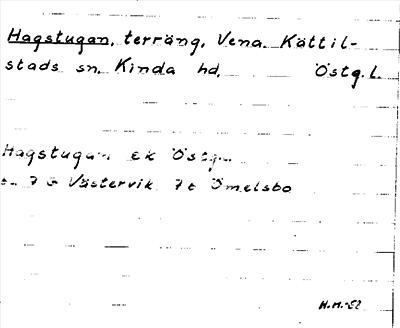 Hagstugan, terräng, Vena. Kättil-
stads sn. Kinda hd. Östg.L.
Hagstugan ek Östg.
7 G Västervik 7c Ömelsbo
H.M.-